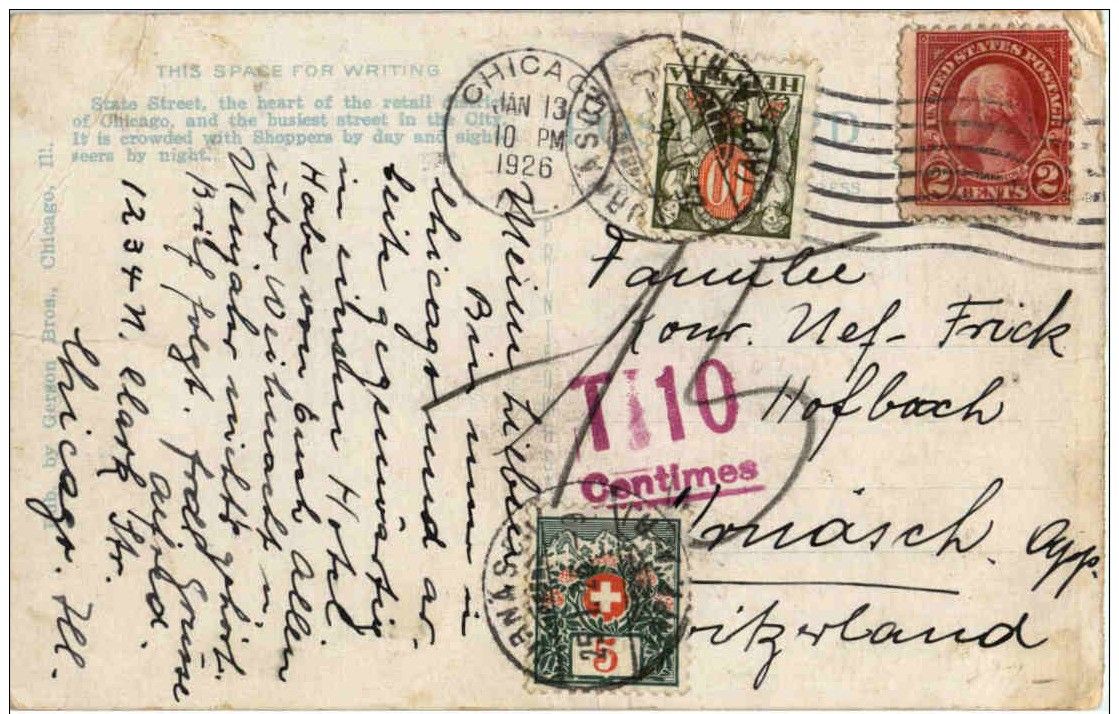 THIS SPACE FOR WRITING
State Street, the heart of the retail district
of Chicago, and the busiest street in the City.
It is crowded with Shoppers by day and sight
seers by night.
Pub. by Gerson Bros., Chicago, Ill.
CHICAGO
JAN 13
10 PM
1926
ILL.
HELVETIA
10
URNÄSCH
(APP
UNITED STATES POSTAGE
2 CENTS 2
Meine Lieben
Bin nun in
Chicago und ar
beite gegenwärtig
in einem Hotel
Habe von Euch allen
über Weihnacht u
Neujahr nichts gehört.
Brief folgt. Grüsse
Arnold
1234 N. Clark Str.
Chicago. Ill.
Familie
Konr. Nef-Frick
Hofbach
Urnäsch. App.
Switzerland
T 10
Centimes
15
URNÄSCH
25
5